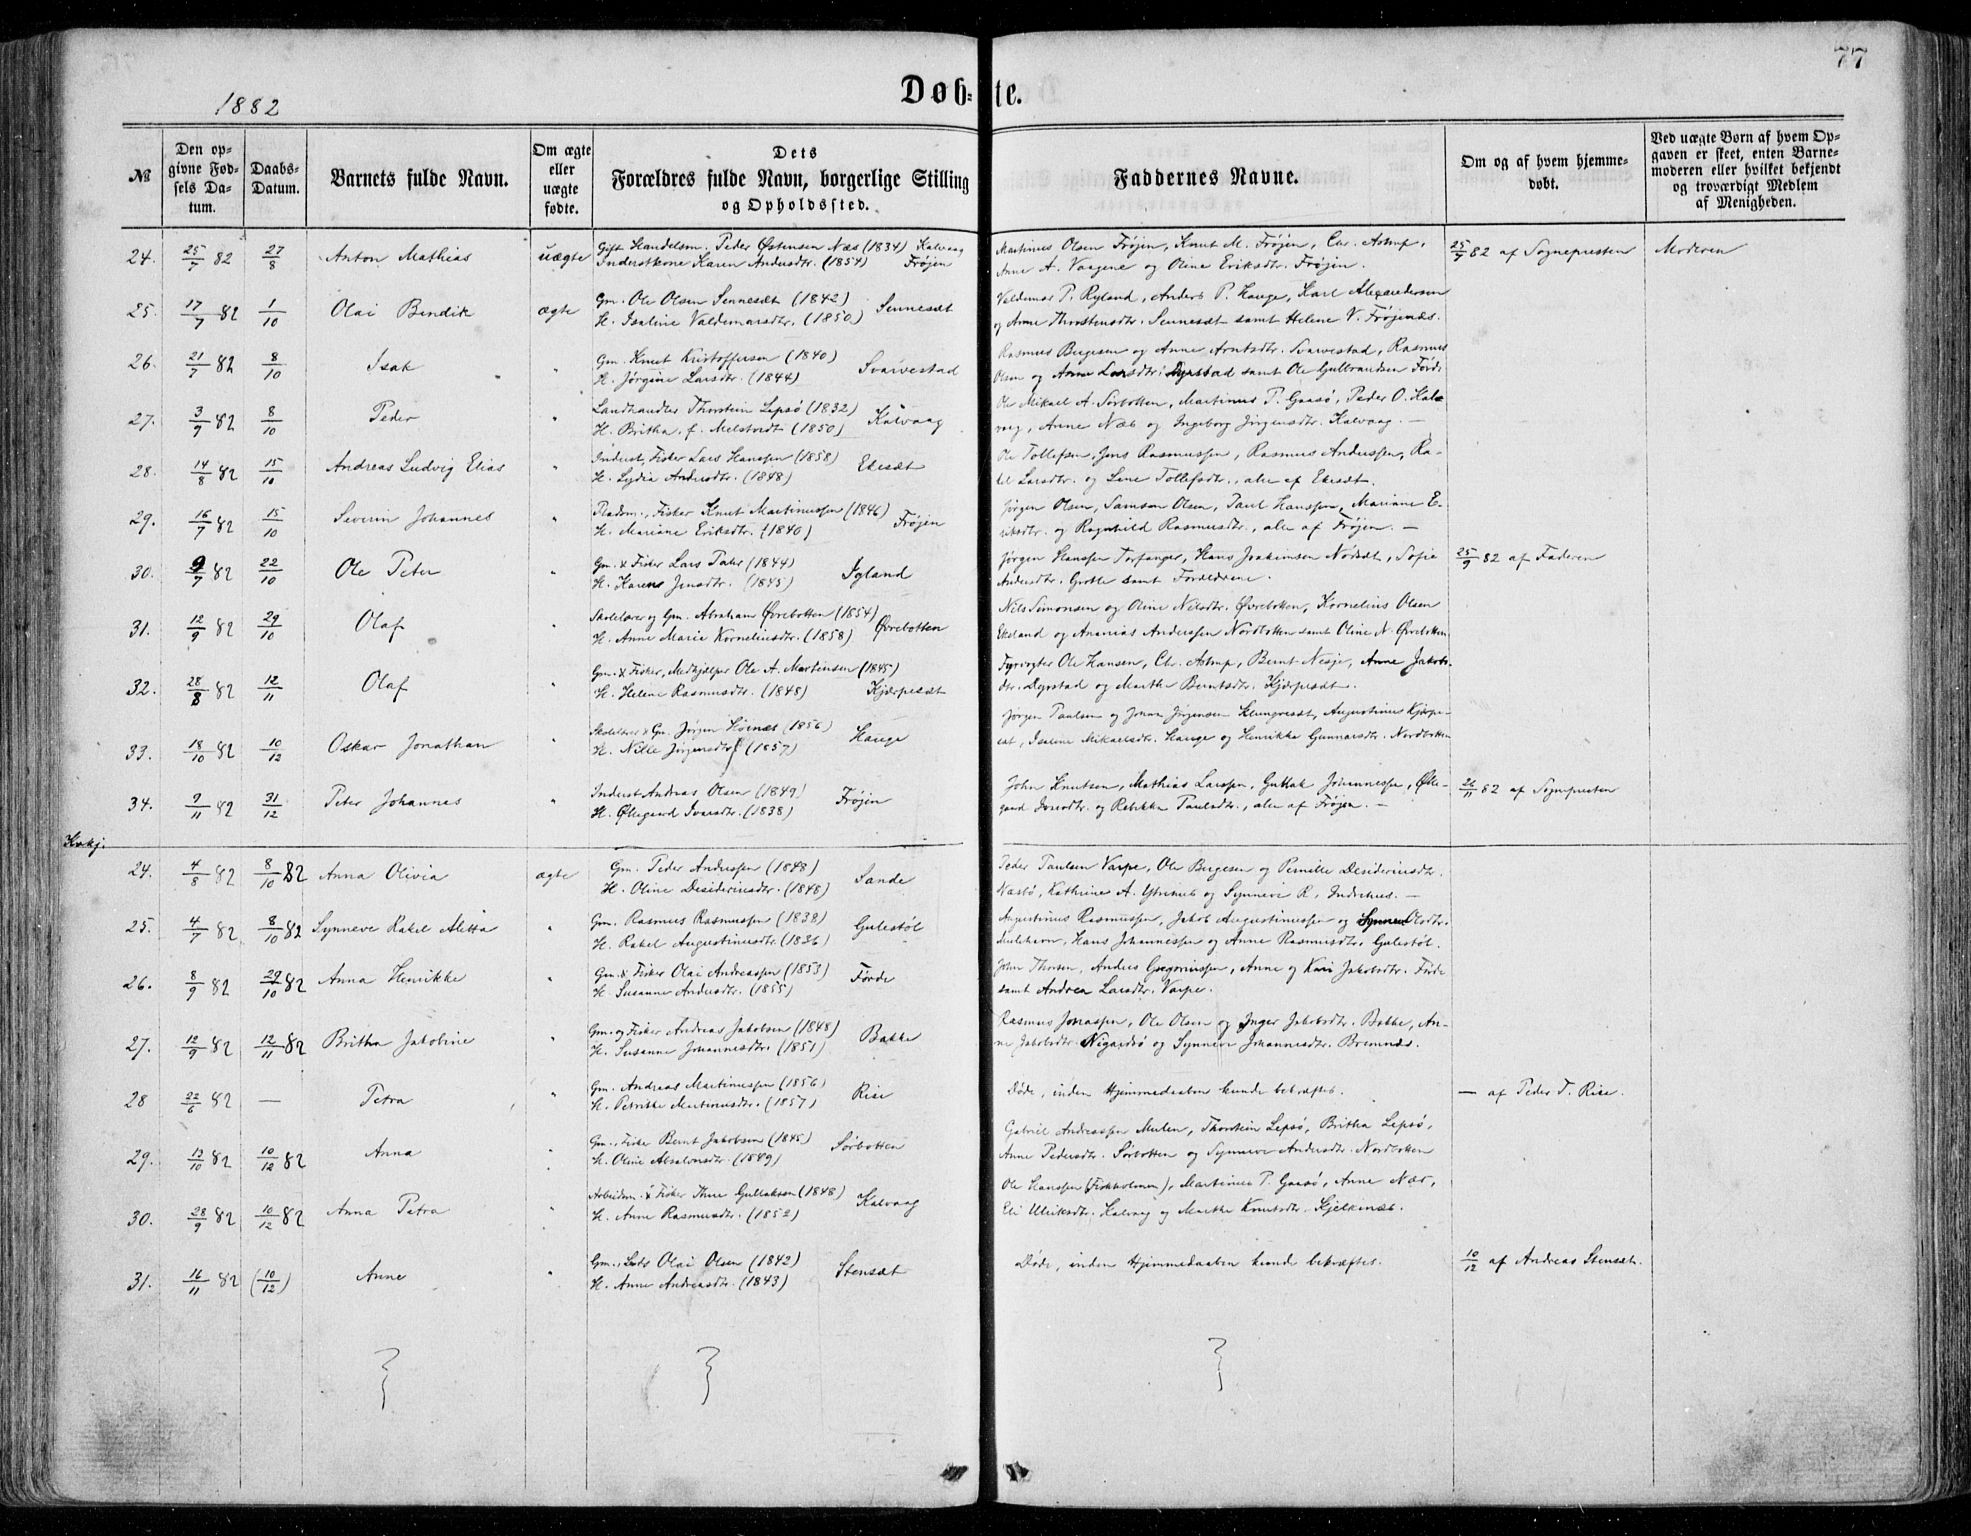 77
1882
Døb-te.
№
Den op-
givne Fød-
sels Da-
tum.
Daabs-
Datum.
Barnets fulde Navn.
Om ægte
eller
uægte
fødte.
Dets
Forældres fulde Navn, borgerlige Stilling
og Opholdssted.
Faddernes Navne.
Om og af hvem hjemme-
døbt.
Ved uægte Børn af hvem Op-
gaven er skeet, enten Barne-
moderen eller hvilket bekjendt
og troværdigt Medlem
af Menigheden.
24. 25/7 82 27/8 Anton Mathias uægte Gift Handelsm. Peder Østensen Næs (1834) Kalvaag
Inderstkone Karen Andersdtr. (1854) Frøjen
Martinus Olsen Frøjen, Knut M. Frøjen, Chr. Astrup,
Anne A. Vaagene og Oline Eriksdtr. Frøjen.
25/7 82 af Sognepresten Moderen
25. 17/7 82 1/10 Olai Bendik ægte Gm. Ole Olsen Sennesæt (1842) Sennesæt
H. Isaline Valdemarsdtr. (1850)
Valdemar P. Ryland, Anders P. Hauge, Karl Alexandersen
og Anne Thorstensdtr. Sennesæt samt Helene V. Frøjenæs.
26. 21/7 82 8/10 Isak " Gm. Knut Kristoffersen (1840) Svarvestad
H. Jørgine Larsdtr. (1844)
Rasmus Bergesen og Anne Arntsdtr. Svarvestad, Rasmus
Olsen og Anne Larsdtr. Dyrstad samt Ole Gulbrandsen Førde
27. 3/9 82 8/10 Peder " Landhandler Thorstein Lepsø (1832) Kalvaag
H. Britha f. Melstvedt (1850)
Ole Mikael A. Sørbotten, Martinus P. Gaasø, Peder O. Kal-
vaag, Anne Næs og Ingeborg Jørgensdtr. Kalvaag. —
28. 14/8 82 15/10 Andreas Ludvig Elias " Inderst, Fisker Lars Hanssen (1858) Ekesæt
H. Lydia Andersdtr. (1848)
Ole Tollefsen, Jens Rasmussen, Rasmus Anderssen, Ra-
kel Larsdtr. og Lene Tollefsdtr., alle af Ekesæt.
29. 16/7 82 15/10 Severin Johannes " Pladsm., Fisker Knut Martinussen (1846) Frøjen
H. Mariane Eriksdtr. (1840)
Jørgen Olsen, Samson Olsen, Paul Hanssen, Mariane E-
riksdtr. og Ragnhild Rasmusdtr., alle af Frøjen. —
30. 9/7 82 22/10 Ole Peter " Gm. & Fisker Lars Peter (1844) Igland
H. Karen Jensdtr. (1845)
Jørgen Hanssen Torfanger, Hans Joakimsen Nødsæt, Sofie
Andersdtr. Grotle samt Forældrene.
25/9 82 af Faderen
31. 12/9 82 29/10 Olaf " Skolelærer og Gm. Abraham Øvrebotten (1854) Øvrebotten
H. Anne Marie Korneliusdtr. (1858)
Nils Simonsen og Oline Nilsdtr. Øvrebotten, Kornelius Olsen
Ekeland og Ananias Anderssen Nordbotten samt Oline N. Øvrebotten
32. 28/8 82 12/11 Olaf " Gm. & Fisker, Medhjælper Ole A. Martinsen (1845)
H. Helene Rasmusdtr. (1848) Kjærpesæt
Fyrvogter Ole Hansen, Chr. Astrup, Bernt Nesje, Anne Jakobs-
dtr. Dyrstad og Marthe Berntsdtr. Kjærpesæt.
33. 18/10 82 10/12 Oskar Jonathan " Skolelærer & Gm. Jørgen Hornæs (1856) Hauge
H. Nille Jørgensdtr. (1857)
Jørgen Paulsen og Johan Jørgensen Klungresæt, Augustinus Kjærpe-
sæt, Isaline Mikaelsdtr. Hauge og Henrikke Gunnarsdtr. Nordbotten
34. 9/11 82 31/12 Peter Johannes " Inderst Andreas Olsen (1849) Frøjen
H. Øllegaard Ivarsdtr. (1838)
John Knutsen, Mathias Larssen, Gullak Johannessen, Ølle-
gaard Iversdtr. og Rebekka Paulsdtr., alle af Frøjen. —
26/11 82 af Sognepresten
24. 4/8 82 8/10 82 Anna Olivia ægte Gm. Peder Anderssen (1848) Sande
H. Oline Desideriusdtr. (1848)
Peder Paulsen Varpe, Ole Bergesen og Pernille Desideriusdtr.
Næsbø, Kathrine A. Ytrehus og Synneve R. Indrehus. —
25. 4/7 82 8/10 82 Synneve Rakel Aletta " Gm. Rasmus Rasmussen (1838) Gulestøl
H. Rakel Augustinusdtr. (1836)
Augustinus Rasmussen, Jakob Augustinussen og Synneve Olsdtr.
Hans Johannessen og Anne Rasmusdtr. Gulestøl.
26. 8/9 82 29/10 82 Anna Henrikke " Gm. & Fisker Olai Andreassen (1853) Førde
H. Susanne Andersdtr. (1855)
John Thorsen, Anders Gregoriussen, Anne og Kari Jakobsdtr. Førde
samt Andrea Larsdtr. Varpe.
27. 12/9 82 12/11 82 Britha Jakobine " Gm. og Fisker Andreas Jakobsen (1848) Bakke
H. Susanne Johannesdtr. (1851)
Rasmus Jonassen, Ole Olsen og Inger Jakobsdtr. Bakke, An-
ne Jakobsdtr. Nigardsø og Synneve Johannesdtr. Bremnæs.
28 22/6 82 — Petra " Gm. Andreas Martinussen (1856) Rise
H. Petrikke Martinusdtr. (1857)
Døde, inden Hjemmedaaben kunde bekræftes.
— af Peder T. Rise.
29. 13/10 82 10/12 82 Anna " Gm., Fisker Bernt Jakobsen (1845) Sørbotten
H. Oline Absalonsdtr. (1849)
Gabriel Andreassen Mulen, Thorstein Lepsø, Britha Lepsø,
Anne Pedersdtr. Sørbotten og Synneve Andersdtr. Nordbotten
30. 28/9 82 10/12 82 Anna Petra " Arbeidsm. & Fisker Thue Gullaksen (1848) Kalvaag
H. Anne Rasmusdtr. (1852)
Ole Hanssen (Fiskholmen), Martinus P. Gaasø, Anne Nær,
Eli Ulriksdtr. Kalvaag og Marthe Knutsdtr. Kjelkenæs.
31. 16/11 82 (10/12) Anne " Gm., Olai Olsen (1842) Stensæt
H. Anne Andreasdtr. (1843)
Døde, inden Hjemmedaaben kunde bekræftes.
10/12 af Andreas Stensæt.